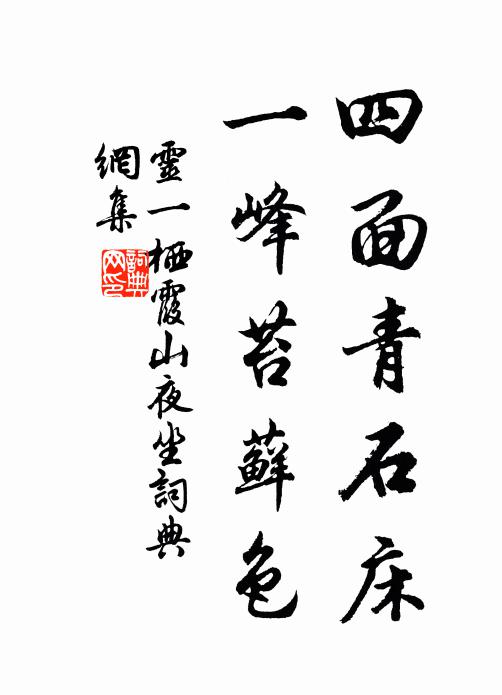 四面青石床
一峰苔蘚色
靈一栖霞山夜坐詞典
網集
詞典网印